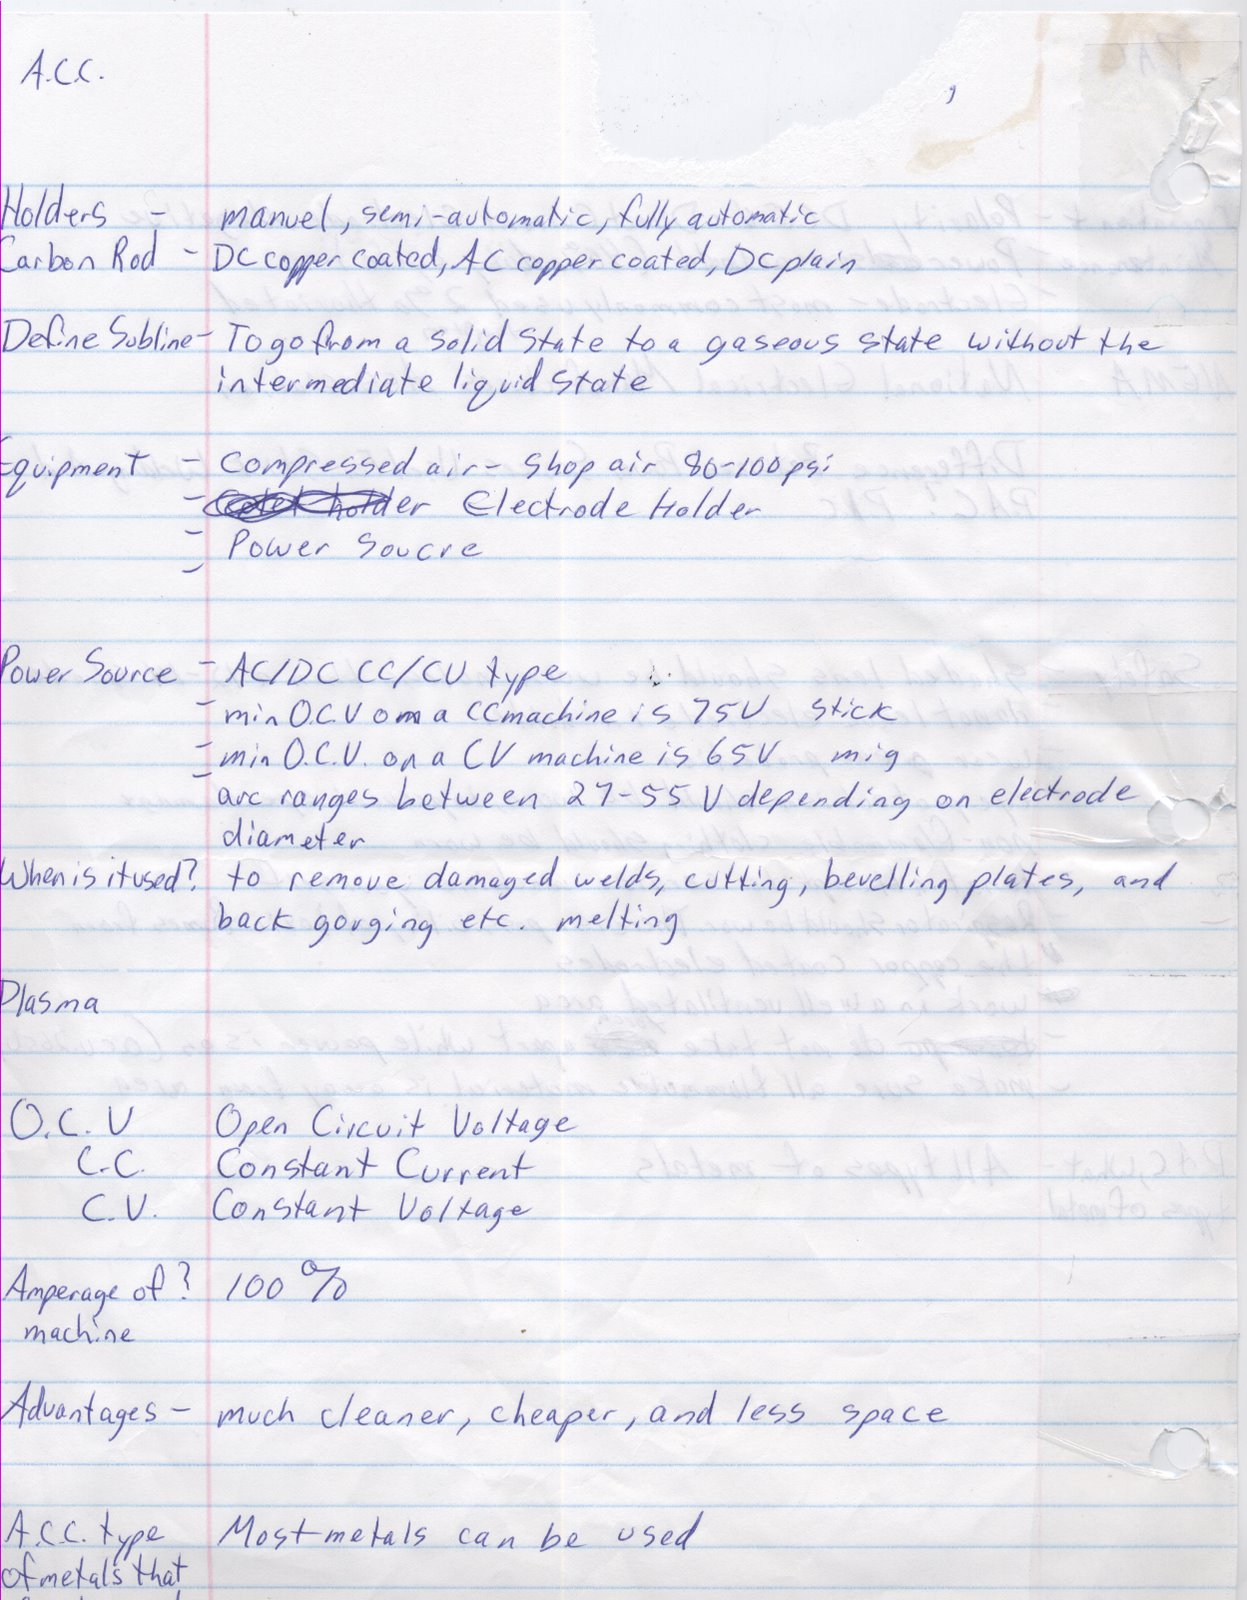 A.C.C.
Holders - manuel, semi-automatic, fully automatic
Carbon Rod - DC copper coated, AC copper coated, DC plain
Define Subline - To go from a solid state to a gaseous state without the
intermediate liquid state
Equipment - Compressed air - shop air 80-100 psi
- holder Electrode Holder
- Power Soucre
-
Power Source - AC/DC CC/CV type
- min O.C.V on a CC machine is 75V stick
- min O.C.V. on a CV machine is 65V mig
- arc ranges between 27-55 V depending on electrode
diameter
When is it used? to remove damaged welds, cutting, bevelling plates, and
back gorging etc. melting
Plasma
O.C.V Open Circuit Voltage
C.C. Constant Current
C.V. Constant Voltage
Amperage of ? 100 %
machine
Advantages - much cleaner, cheaper, and less space
A.C.C. type Most metals can be used
of metals that